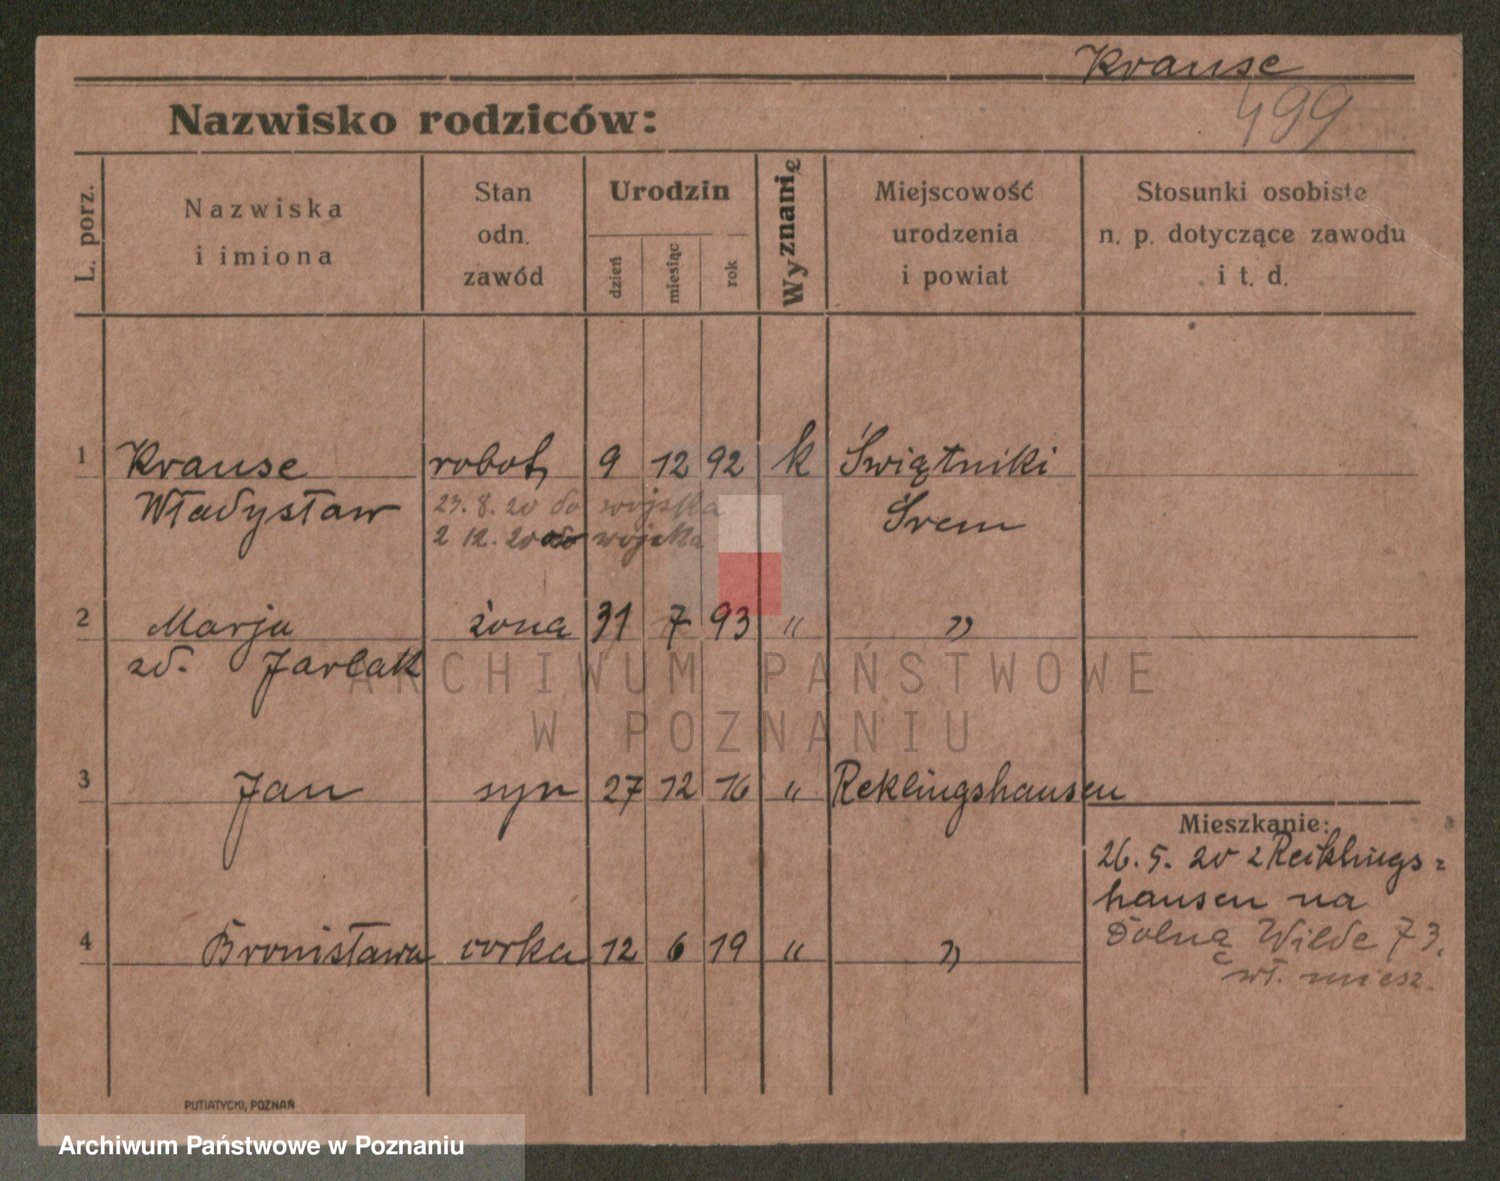 Krause
499
Nazwisko rodziców:
L. porz.
Nazwiska
i imiona
Stan
odn.
zawód
Urodzin
dzień
miesiąc
rok
Wyznanię
Miejscowość
urodzenia
i powiat
Stosunki osobiste
n. p. dotyczące zawodu
i t. d.
1 Krause robot, 9 12 92 k Świątniki
Władysław Śrem
23. 8. 20 do wojska
2 12. 20 do wojska
2 Marja żona 31 7 93 " "
zd. Jarlak
ARCHIWUM PAŃSTWOWE
W POZNANIU
3 Jan syn 27 12 16 " Reklingshausen
Mieszkanie:
26. 5. 20 z Reiklings=
hausen na
Dolną Wilde 73.
wł. miesz.
4 Bronisława corka 12 6 19 " "
PUTIATYCKI, POZNAŃ
Archiwum Państwowe w Poznaniu